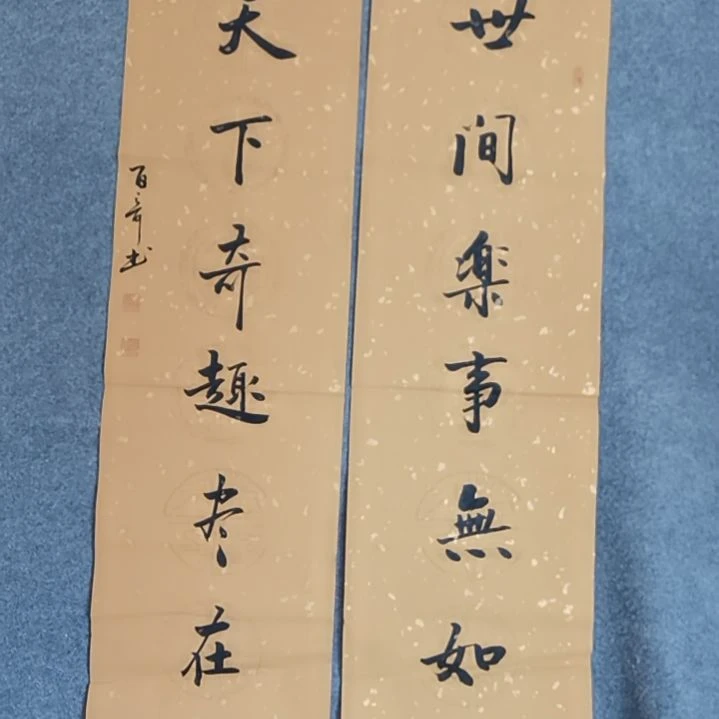 世间樂事無如
天下奇趣尽在
百奇书